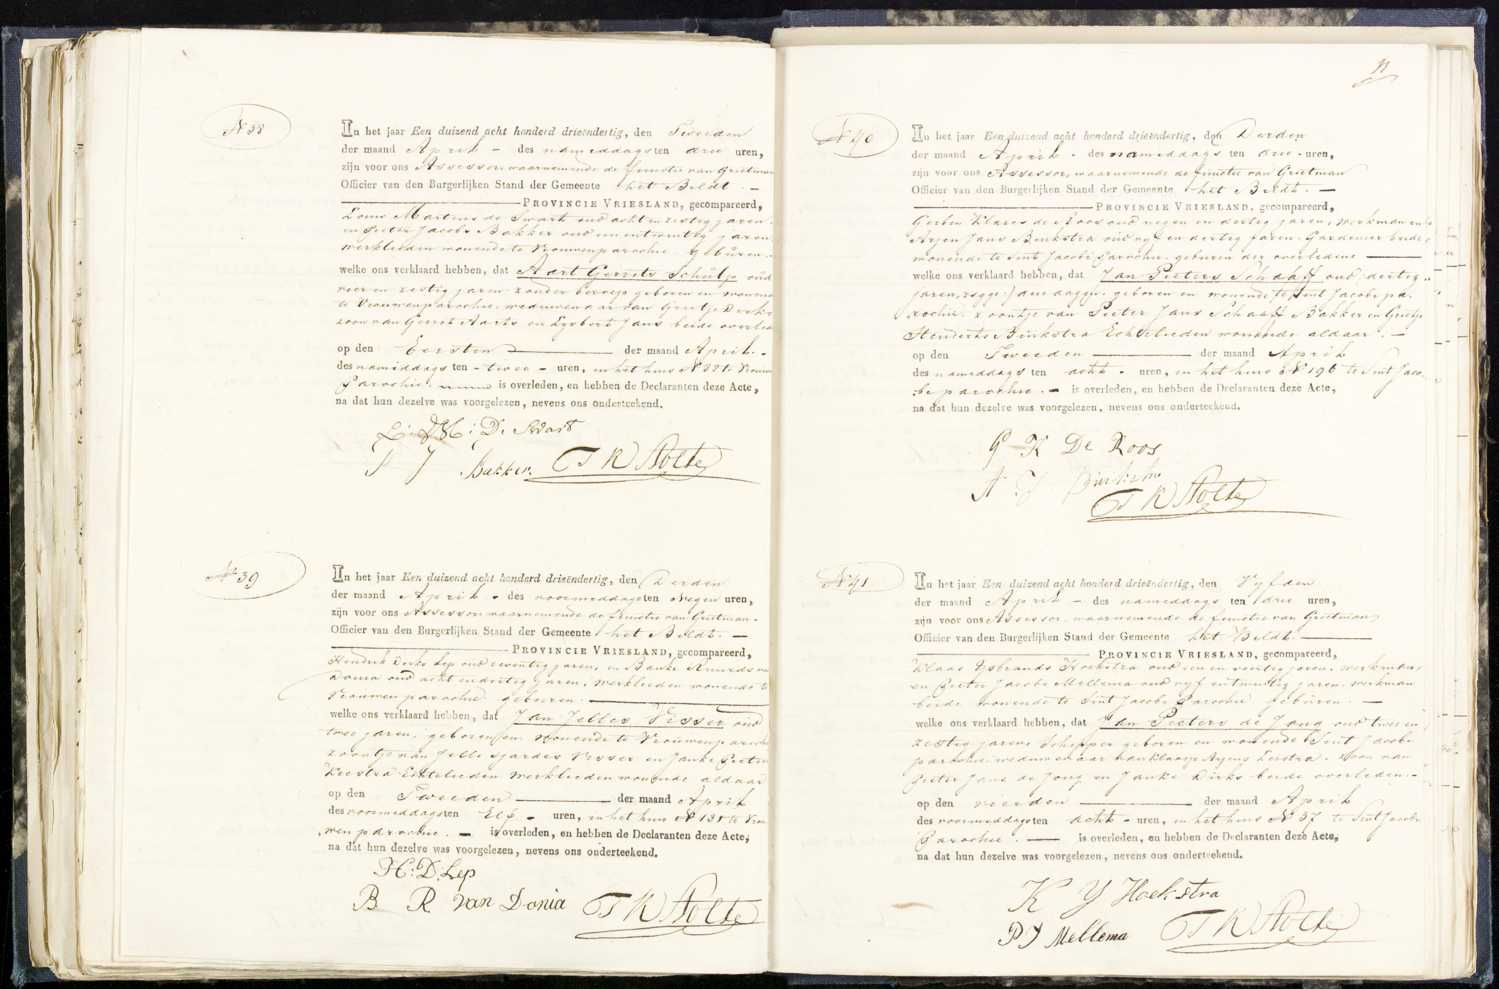 N 38
In het jaar Een duizend acht honderd drieëndertig, den Tweeden
der maand April - des nameddags ten drie uren,
zijn voor ons Assessor waarnemende de functie van Grietman
Officier van den Burgerlijken Stand der Gemeente het Bildt. —
PROVINCIE VRIESLAND, gecompareerd,
Louw Martens de Swart oud acht en zestig jaren
en Pieter Jacobs Bakker oud een en twintig jaren
werklieden wonende te Vrouwenparochie geburen.
welke ons verklaard hebben, dat Aart Gerrits Schulp oud
vier en zestig jaren zonder beroep geboren en wonende
te Vrouwenparochie, weduwenaar van Grietje Derks
zoon van Gerrit Aarts en Lysbert Jans beide overle
op den Eersten der maand April.
des nameddags ten twee uren, in het huis N 221 Vrouwen
Parochie is overleden, en hebben de Declaranten deze Acte,
na dat hun dezelve was voorgelezen, nevens ons onderteekend.
L: M: De Swart
P J Bakker T K Stolte
N 39
In het jaar Een duizend acht honderd drieëndertig, den Derden
der maand April des voormeddags ten Negen uren,
zijn voor ons Assessor waarnemende de functie van Grietman.
Officier van den Burgerlijken Stand der Gemeente het Bildt. —
PROVINCIE VRIESLAND, gecompareerd,
Hendrik Derks Lep oud seventig jaren, en Bauke Ruurds van
Donia oud acht endertig jaren, werklieden wonende te
Vrouwen parochie geburen.
welke ons verklaard hebben, dat Jan Jelles Visser oud
twee jaren, geboren en wonende te Vrouwenparochie
zoontje van Jelle Sjoerds Visser en Janke Pieters
Echtelieden Werklieden wonende aldaar
op den Tweeden der maand April
des voormeddags ten Elf - uren, in het huis N 138 te Vrou
wenparochie. — is overleden, en hebben de Declaranten deze Acte,
na dat hun dezelve was voorgelezen, nevens ons onderteekend.
H: D. Lep
B R van Donia T K Stolte
11
N 40
In het jaar Een duizend acht honderd drieëndertig, den Derden
der maand April. des nameddags ten drie uren,
zijn voor ons Assessor, waarnemende de functie van Grietman
Officier van den Burgerlijken Stand der Gemeente het Bildt. —
PROVINCIE VRIESLAND, gecompareerd,
Gerben Klazes de Roos oud negen en dertig jaren, werkman en
Arjen Jans Binkstra oud vyf en dertig jaren Gardenier beide
wonende te Sint Jacobi Parochie geburen der overledene
welke ons verklaard hebben, dat Jan Pieters Schaaff oud dertig
jaren, zegge drie dagen. geboren en wonende te Sint Jacobi pa
rochie. zoontje van Pieter Jans Schaaff Bakker en Grietje
Henderks Binkstra Echtelieden wonende aldaar. —
op den Tweeden der maand April
des nameddags ten acht. uren, in het huis N 196 te Sint Jaco
bi parochie. — is overleden, en hebben de Declaranten deze Acte,
na dat hun dezelve was voorgelezen, nevens ons onderteekend.
G K De Roos
A J Binkstra
T K Stolte
N 41
In het jaar Een duizend acht honderd drieëndertig, den Vyfden
der maand April - des nameddags ten drie uren,
zijn voor ons Assessor, waarnemende de functie van Grietman
Officier van den Burgerlijken Stand der Gemeente het Bildt.
PROVINCIE VRIESLAND, gecompareerd,
Klaas Ysbrands Hoekstra oud een en veertig jaren, werkman,
en Pieter Jacobs Mellema oud vyf entwintig jaren. werkman
beide wonende te Sint Jacobi Parochie geburen. —
welke ons verklaard hebben, dat Jan Pieters de Jong oud twee en
zestig jaren Schipper geboren en wonende te Sint Jacobi
parochie weduwenaar van Klaasje Arjens zoon van
Pieter Jans de Jong en Janke Dirks beide overleden. -
op den vierden der maand April
des voormeddags ten acht - uren, in het huis N 37 te Sint Jacobi
Parochie. — is overleden, en hebben de Declaranten deze Acte,
na dat hun dezelve was voorgelezen, nevens ons onderteekend.
K Y Hoekstra
P J Mellema T K Stolte